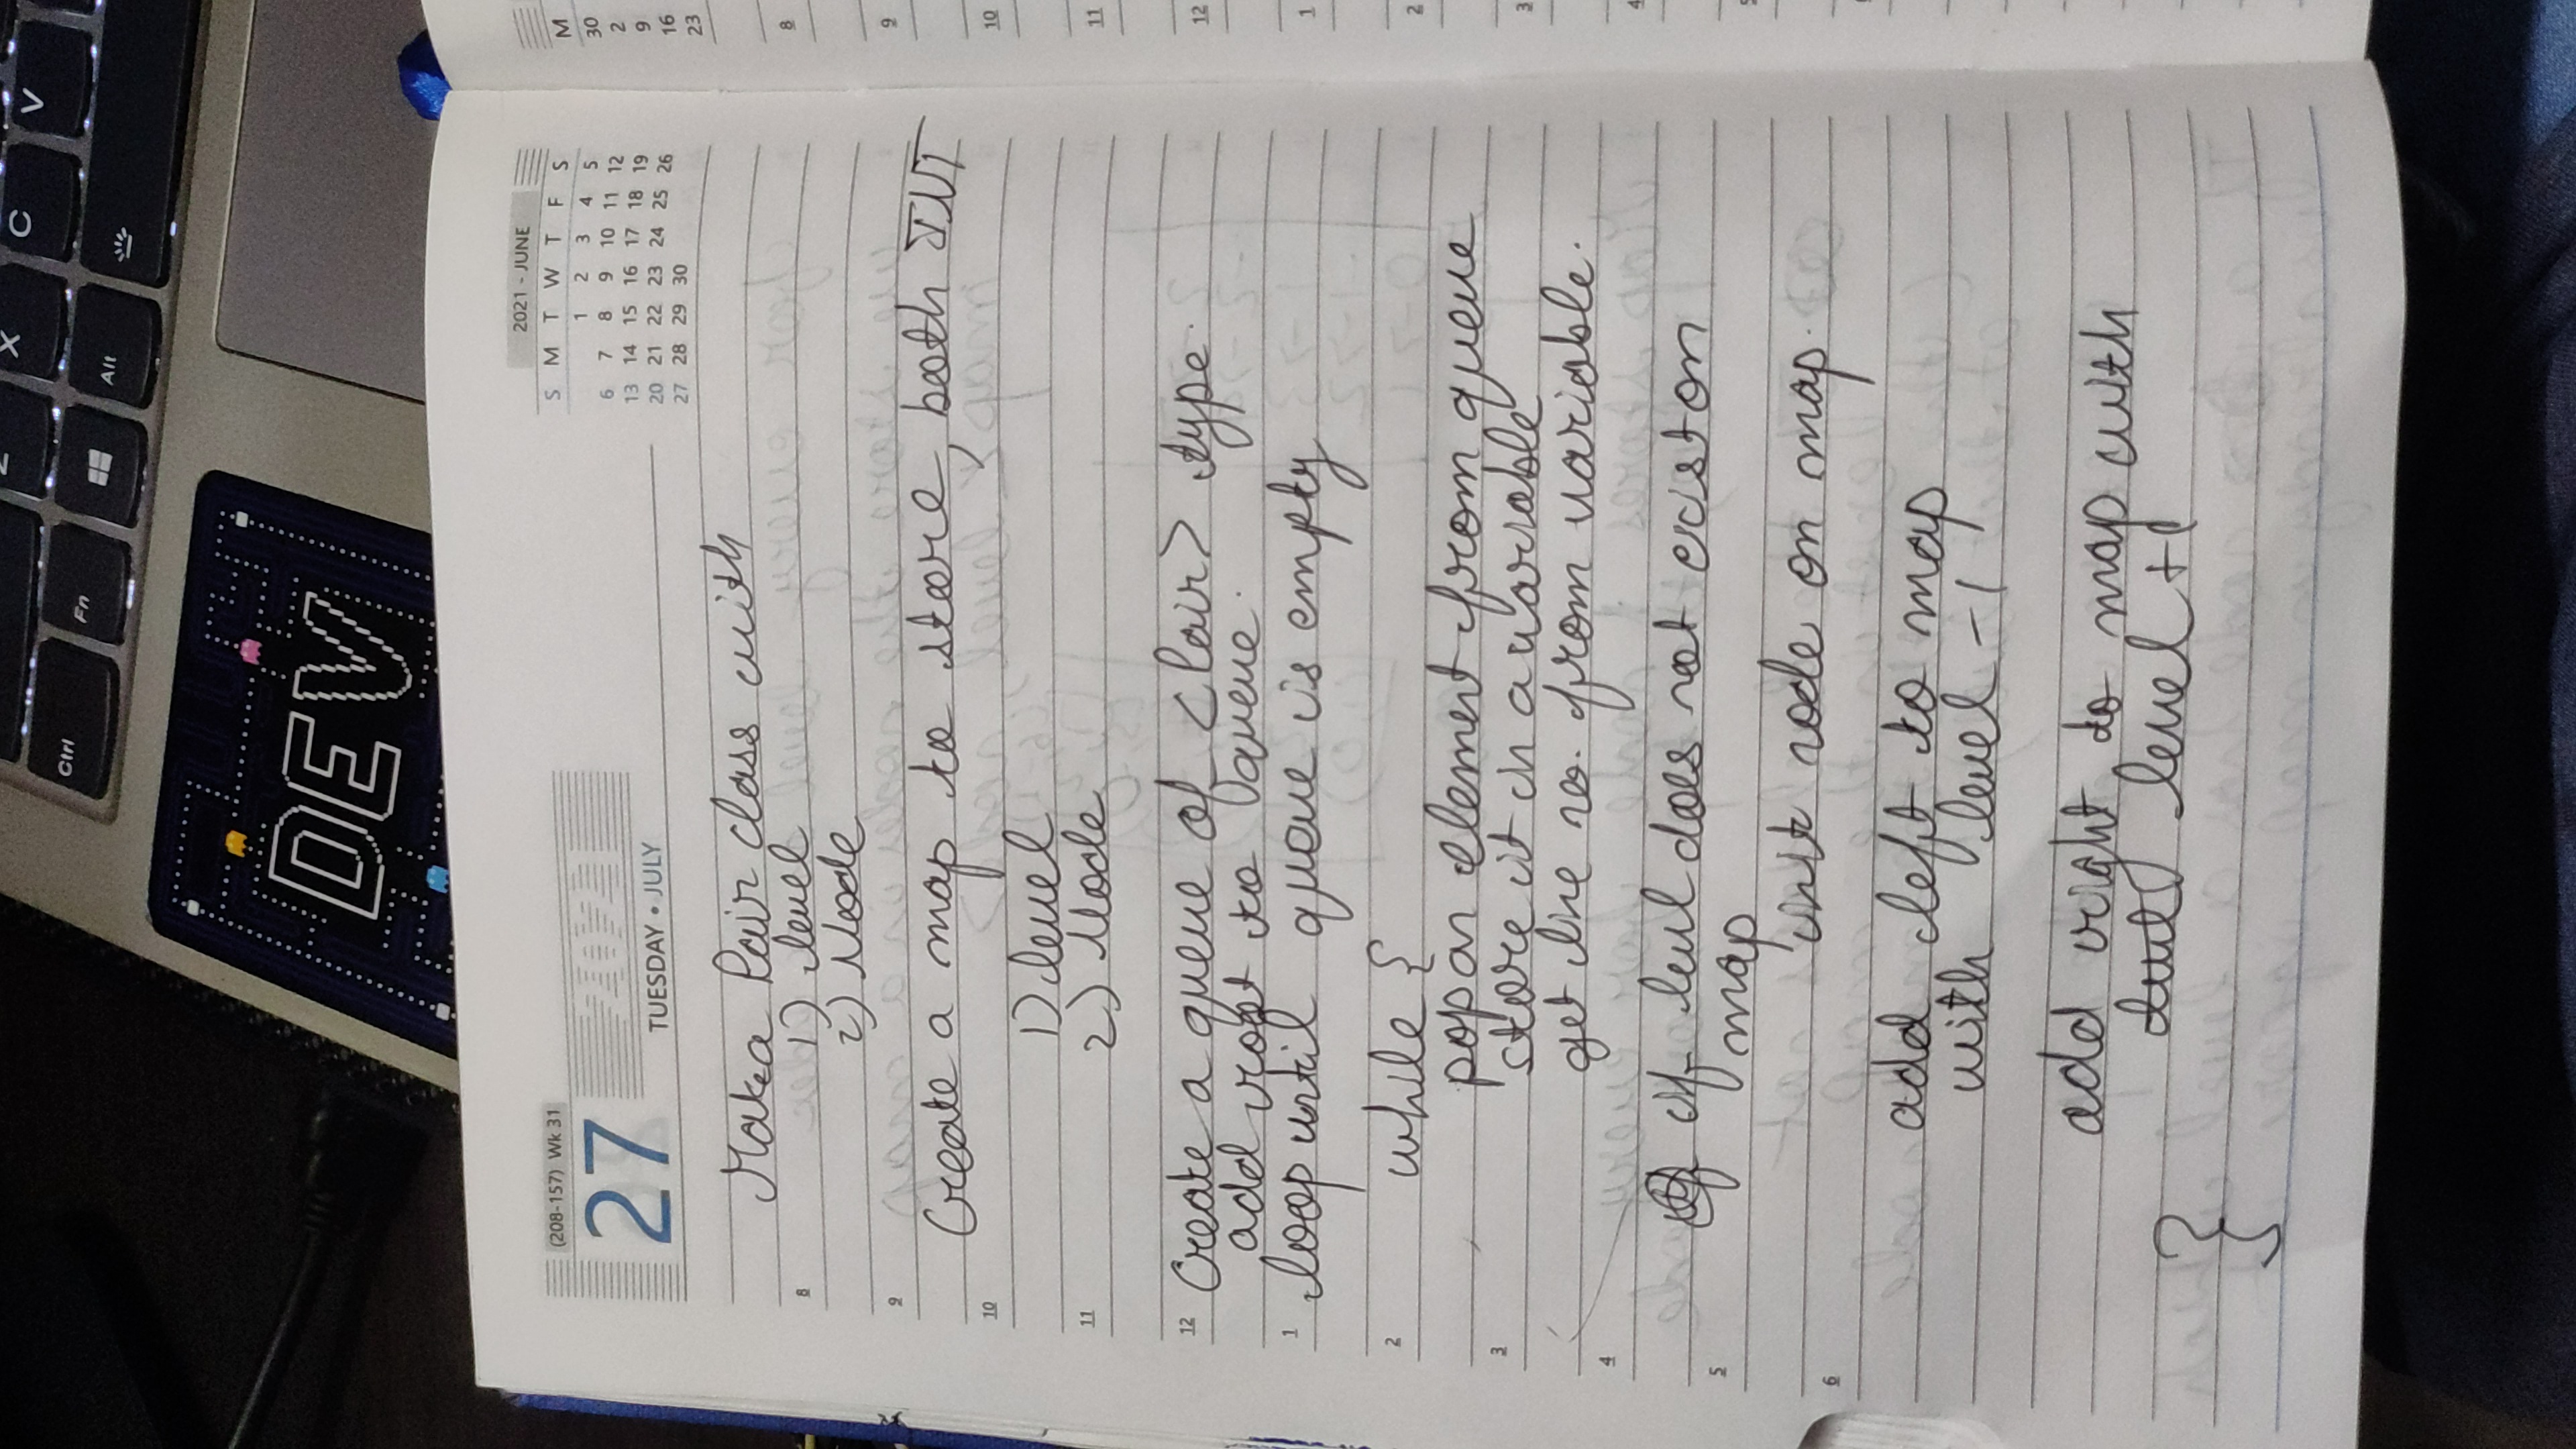 Z X C V
Ctrl Fn Alt
DEV
(208-157) Wk 31
27
2021
TUESDAY • JULY
2021 - JUNE
S M T W T F S
1 2 3 4 5
6 7 8 9 10 11 12
13 14 15 16 17 18 19
20 21 22 23 24 25 26
27 28 29 30
M
30
2
9
16
23
Make a Pair class with
8 1) level
2) Node
9
Create a map to store, both INT
10
1) level
11 2) Node
12 Create a queue of <Pair> type.
add root to queue.
1 loop until queue is empty
2 while {
pop an element from queue
3 store it in a variable
get line no. from variable.
4
if if level does not exist on
5 map
init node on map.
6
add left to map
with level -1
add right to map with
level level +1
}
8
9
10
11
12
1
2
3
4
5
6